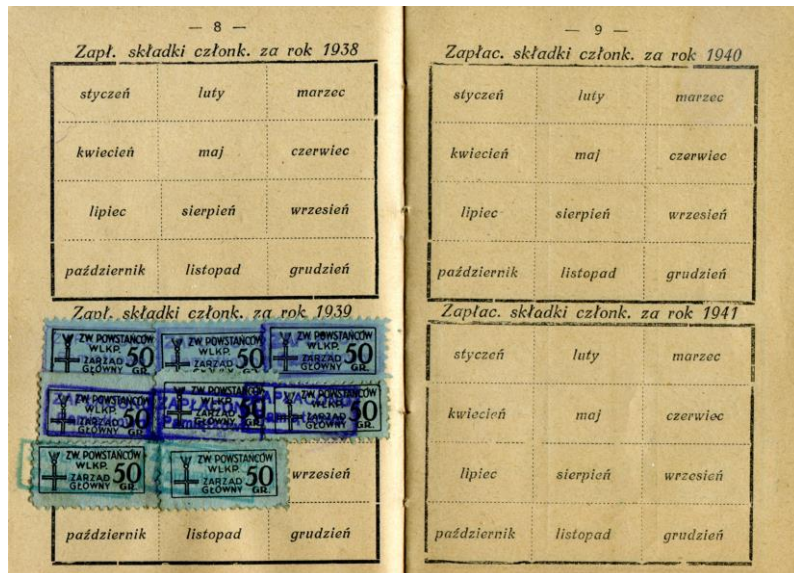 — 8 —
Zapł. składki członk. za rok 1938
styczeń luty marzec
kwiecień maj czerwiec
lipiec sierpień wrzesień
październik listopad grudzień
Zapł. składki członk. za rok 1939
ZW. POWSTAŃCÓW WLKP. ZARZĄD 50
ZW. POWSTAŃCÓW WLKP. ZARZĄD 50
ZW. POWSTAŃCÓW WLKP. ZARZĄD 50
ZW. POWSTAŃCÓW WLKP. ZARZĄD GŁÓWNY 50 GR.
ZW. POWSTAŃCÓW WLKP. ZARZĄD GŁÓWNY 50 GR.
ZW. POWSTAŃCÓW WLKP. ZARZĄD GŁÓWNY 50 GR.
ZW. POWSTAŃCÓW WLKP. ZARZĄD GŁÓWNY 50 GR.
ZW. POWSTAŃCÓW WLKP. ZARZĄD GŁÓWNY 50 GR.
wrzesień
październik listopad grudzień
— 9 —
Zapłac. składki członk. za rok 1940
styczeń luty marzec
kwiecień maj czerwiec
lipiec sierpień wrzesień
październik listopad grudzień
Zapłac. składki członk. za rok 1941
styczeń luty marzec
kwiecień maj czerwiec
lipiec sierpień wrzesień
październik listopad grudzień